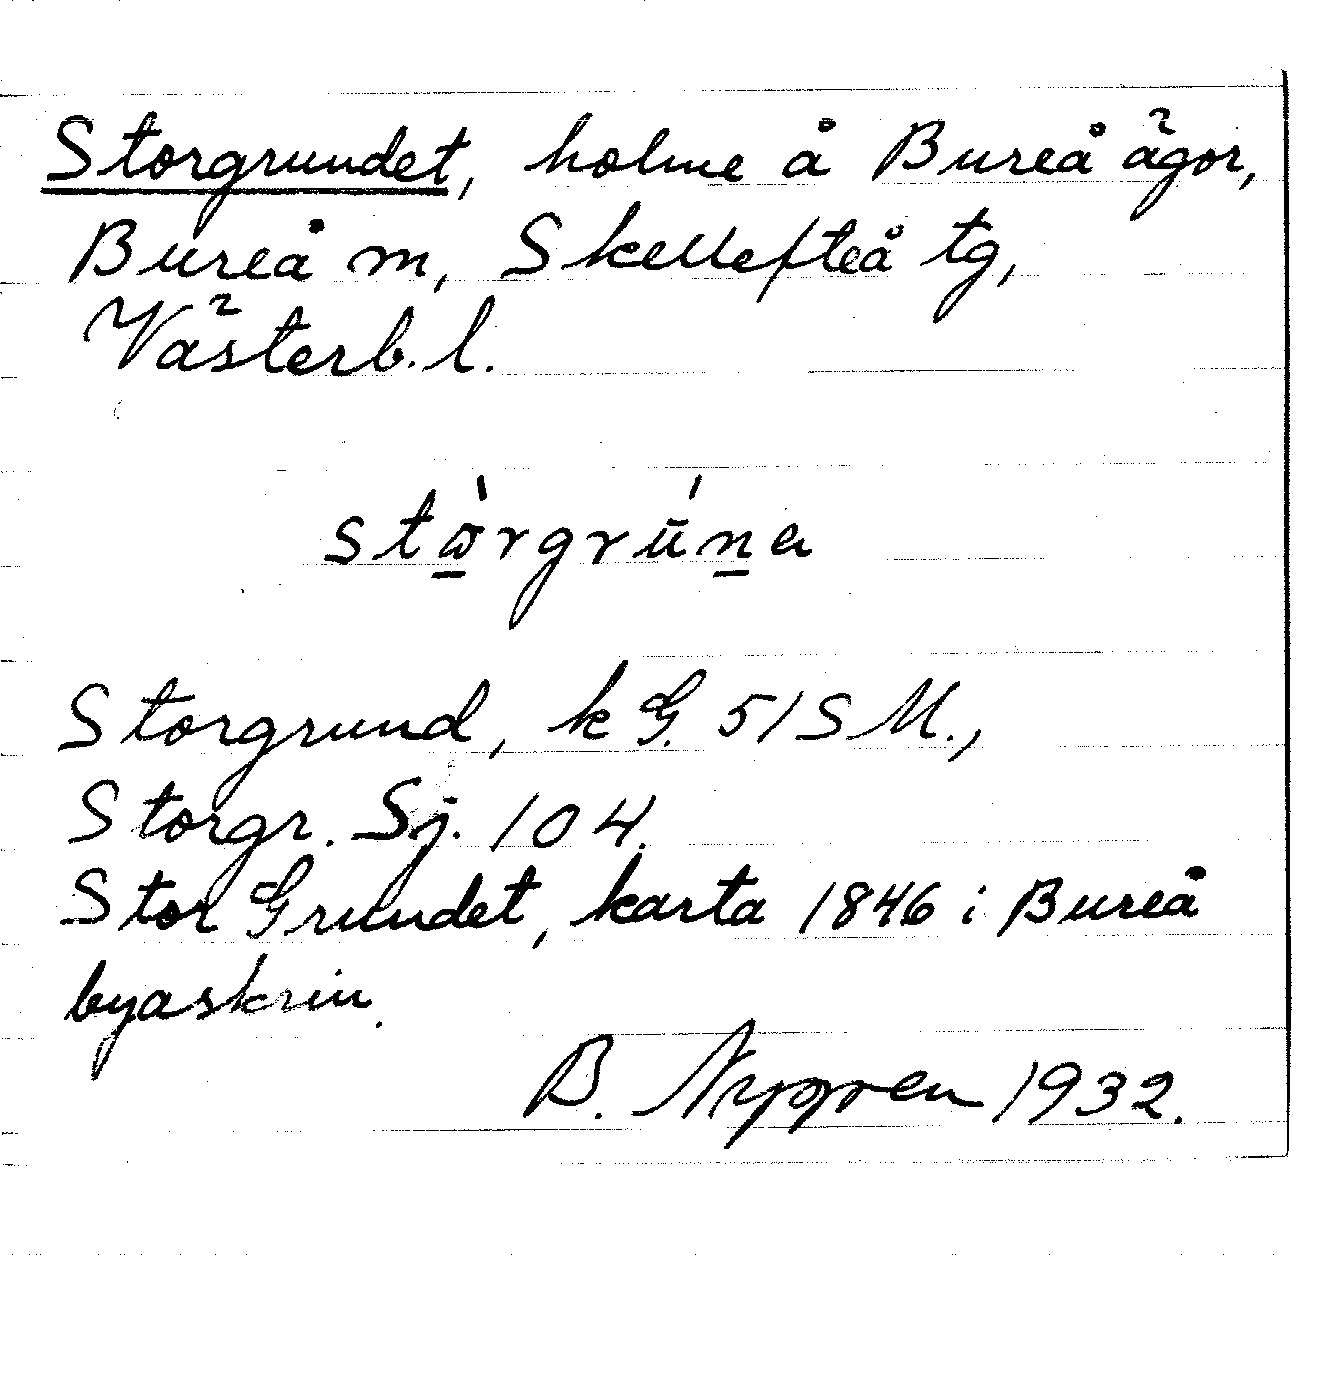 Storgrundet, holme å Bureå ägor,
Bureå m, Skellefteå tg,
Västerb. l.
stòrgrū́na
Storgrund, kG. 51 S M.,
Storgr. Sj. 104.
Stor Grundet, karta 1846 i Bureå
byaskrin.
B. Nygren 1932.